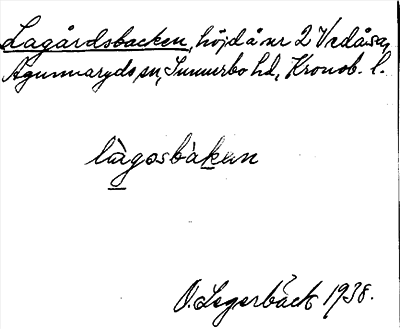 Lagårdsbacken, höjd å nr 2 Vedåsa,
Agunnaryds sn, Sunnerbo hd, Kronob. l.
làgosbàkan
O. Legerbäck 1938.